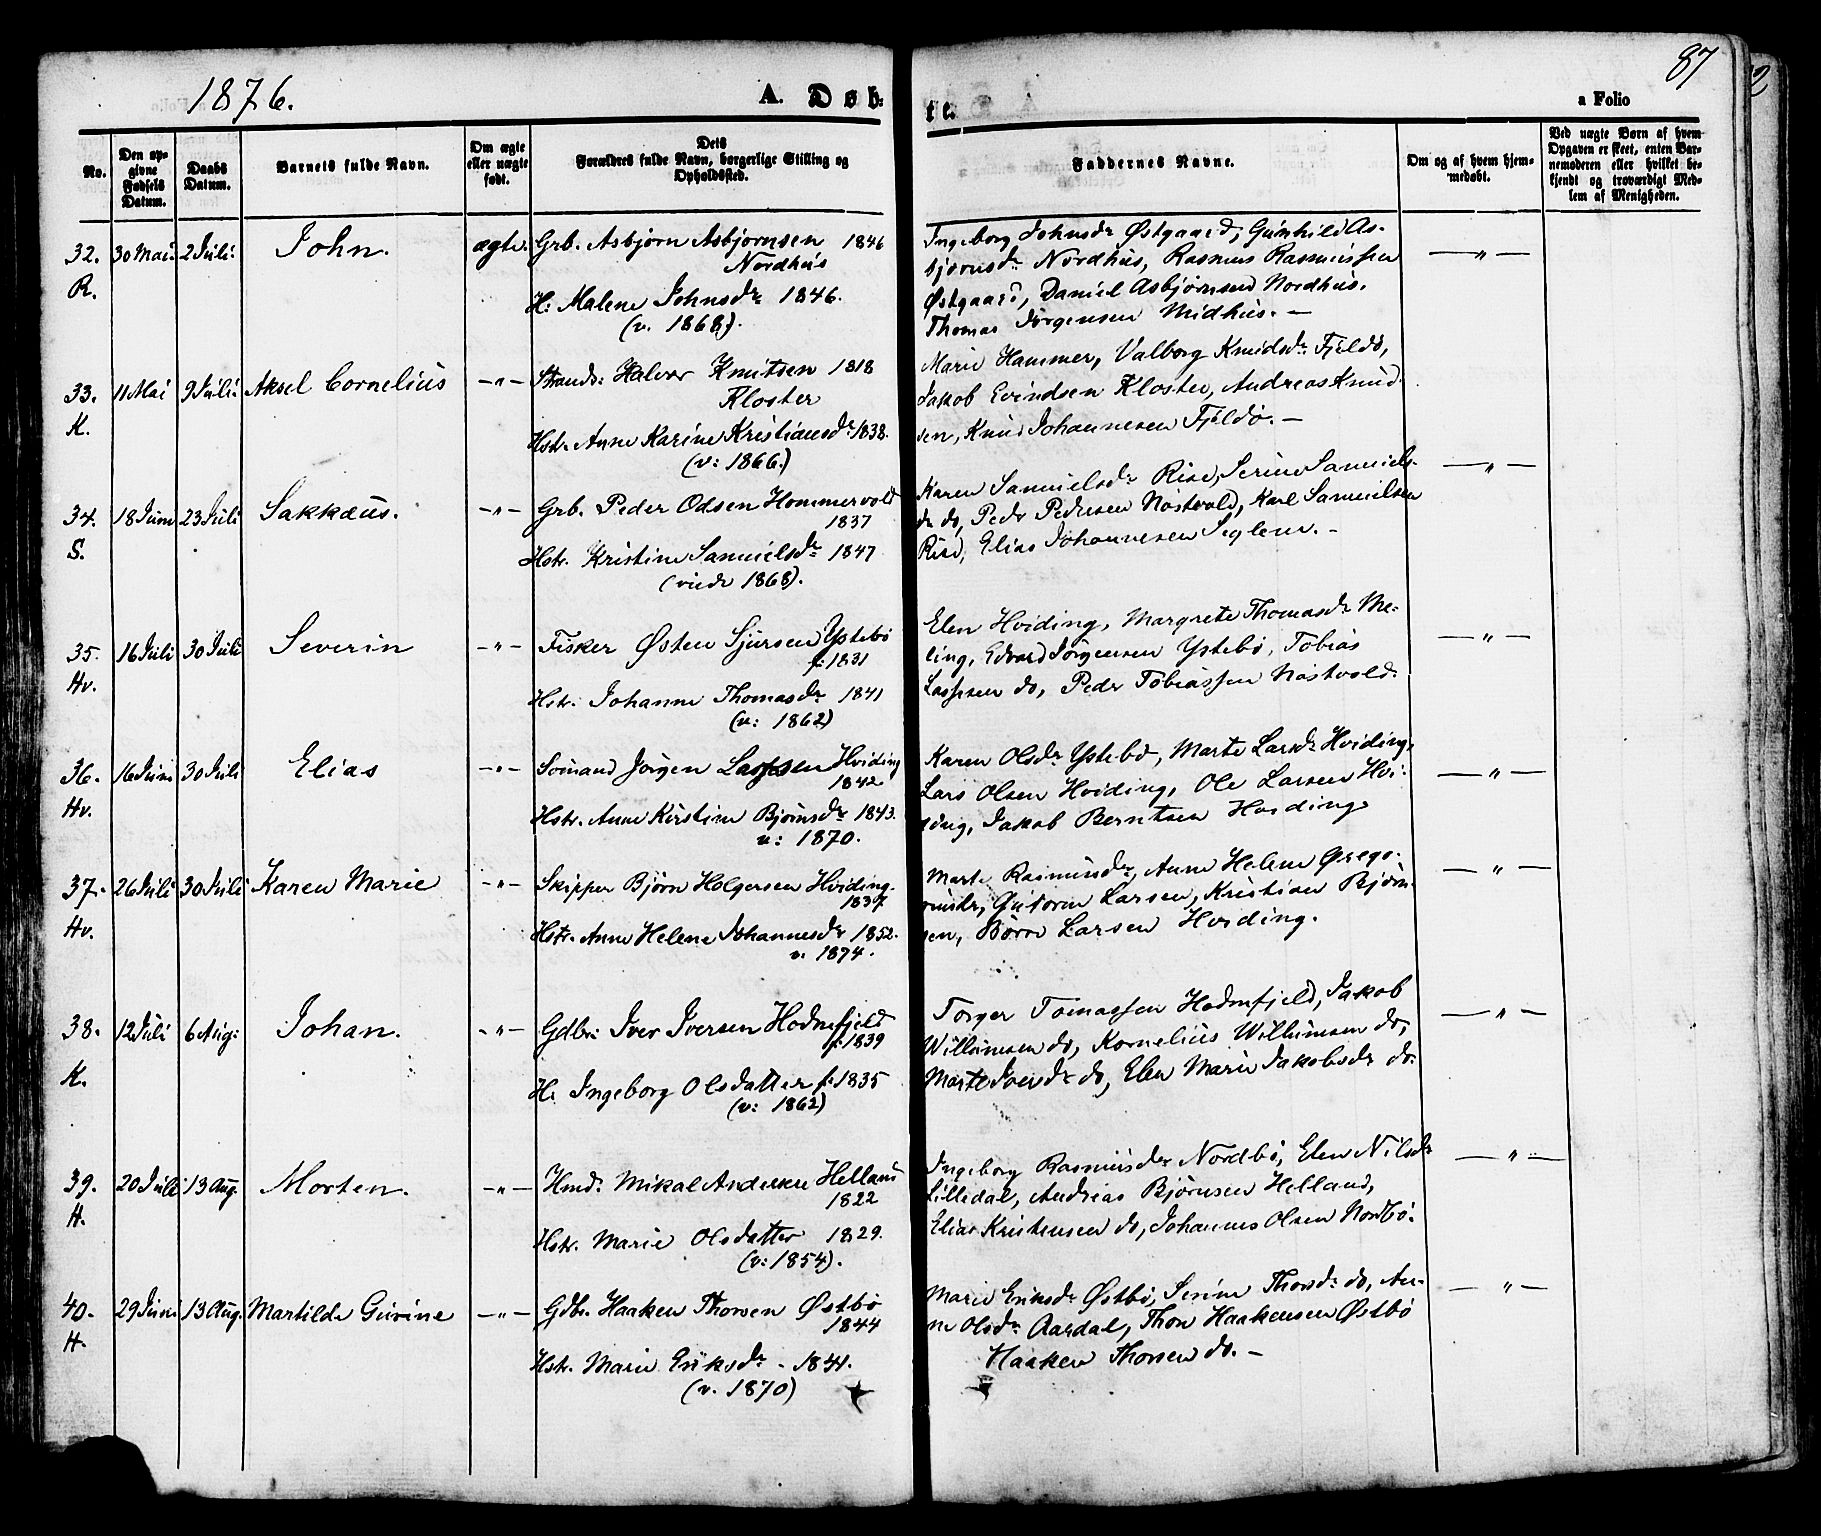 1876.
A. Døb-
te.
a Folio
87
2
No.
Den op-
givne
Fødsels
Datum.
Daabs
Datum.
Barnets fulde Navn.
Om ægte
eller uægte
født.
Dets
Forældres fulde Navn, borgerlige Stilling og
Opholdssted.
Faddernes Navne.
Om og af hvem hjem-
medøbt.
Ved uægte Børn af hvem
Opgaven er skeet, enten Bar-
nemoderen eller hvilket be-
kjendt og troværdigt Med-
lem af Menigheden.
32.
R.
30 Mai.
2 Juli.
John.
ægte.
Grb. Asbjørn Asbjørnsen 1846
Nordhus
H: Malene Johnsdr 1846.
(v. 1868).
Ingeborg Johnsdr Østgaard, Gunhild As-
bjørnsdr Nordhus, Rasmus Rasmussen
Østgaard, Daniel Asbjørnsen Nordhus.
Thomas Jørgensen Midhus. —
— " —
33.
K.
11 Mai
9 Juli.
Aksel Cornelius
— " —
Strands: Halvor Knutsen 1818
Kloster
Hstr. Anne Karine Kristiansdr 1838.
(v: 1866.)
Marie Hammer, Valborg Knudsdr Fjeldø,
Jakob Evindsen Kloster, Andreas Knud-
sen, Knud Johannesen Fjeldø. —
— " —
34.
S.
18 Juni
23 Juli
Sakkæus.
— " —
Grb. Peder Odsen Hommervold
1837
Hstr. Kristine Samuelsdr 1847
(viede 1868).
Karen Samuelsdr Risø, Serine Samuels-
dr do, Peder Pedersen Nøstvold, Karl Samuelsen
Risø, Elias Johannesen Seglem. —
35.
Hv.
16 Juli
30 Juli
Severin
— " —
Fisker Østen Sjursen Ystebø
f: 1831
Hstr. Johanne Thomasdr 1841
(v: 1862)
Elen Hviding, Margrete Thomasdr Me-
ling, Edvard Jørgensen Ystebø, Tobias
Lassesen do, Peder Tobiassen Nøstvold.
— " —
36.
Hv.
16 Juni
30 Juli
Elias
— " —
Sømand Jørgen Lassesen Hviding
1842
Hstr. Anne Kirstine Bjørnsdr 1843.
v: 1870.
Karen Olsdr Ystebø, Marte Larsdr Hviding,
Lars Olsen Hviding, Ole Larsen Hvi-
ding, Jakob Berntsen Hviding
— " —
37.
Hv.
26 Juli
30 Juli
Karen Marie
— " —
Skipper Bjørn Holgersen Hviding.
1837
Hstr. Anne Helene Johannesdr 1852.
v. 1874.
Marte Rasmusdr, Anne Helene Grego-
riusdr, Gutorm Larsen, Kristian Bjørn-
sen, Børre Larsen Hviding.
— " —
38.
K.
12 Juli
6 Aug:
Johan.
— " —
Gdbr: Iver Iversen Hodnefjeld
f: 1839
H: Ingeborg Olsdatter f: 1835
(v: 1862)
Torger Tomassen Hodnefjeld, Jakob
Willumsen do, Kornelius Willumsen do,
Marte Iversdr do, Elen Marie Jakobsdr do.
— " —
39.
H.
20 Juli
13 Aug.
Morten.
— " —
Hmd: Mikal Andersen Helland
1822
Hstr. Marie Olsdatter 1829.
(v: 1854).
Ingeborg Rasmusdr Nordbø, Elen Nilsdr
Lilledal, Andreas Bjørnsen Helland,
Elias Kristensen do, Johannes Olsen Nordbø.
— " —
40.
H.
29 Juni
13 Aug.
Martilde Gurine
— " —
Gdbr. Haaken Thorsen Østbø
1844
Hstr. Marie Eriksdr - 1841.
(v. 1870)
Marie Eriksdr Østbø, Serine Thorsdr do, An-
ne Olsdr Aardal, Thor Haakensen Østbø
Haaken Thorsen do. —
— " —